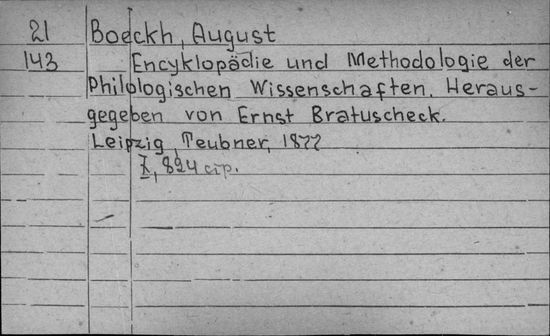 21 Boeckh, August
143 Encyklopädie und Methodologie der
Philologischen Wissenschaften. Heraus-
gegeben von Ernst Bratuscheck.
Leipzig, Teubner, 1877
X, 824 стр.